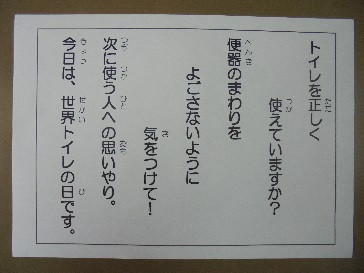 トイレを正しく
使えていますか？
便器のまわりを
よごさないように
気をつけて！
次に使う人への思いやり。
今日は、世界トイレの日です。